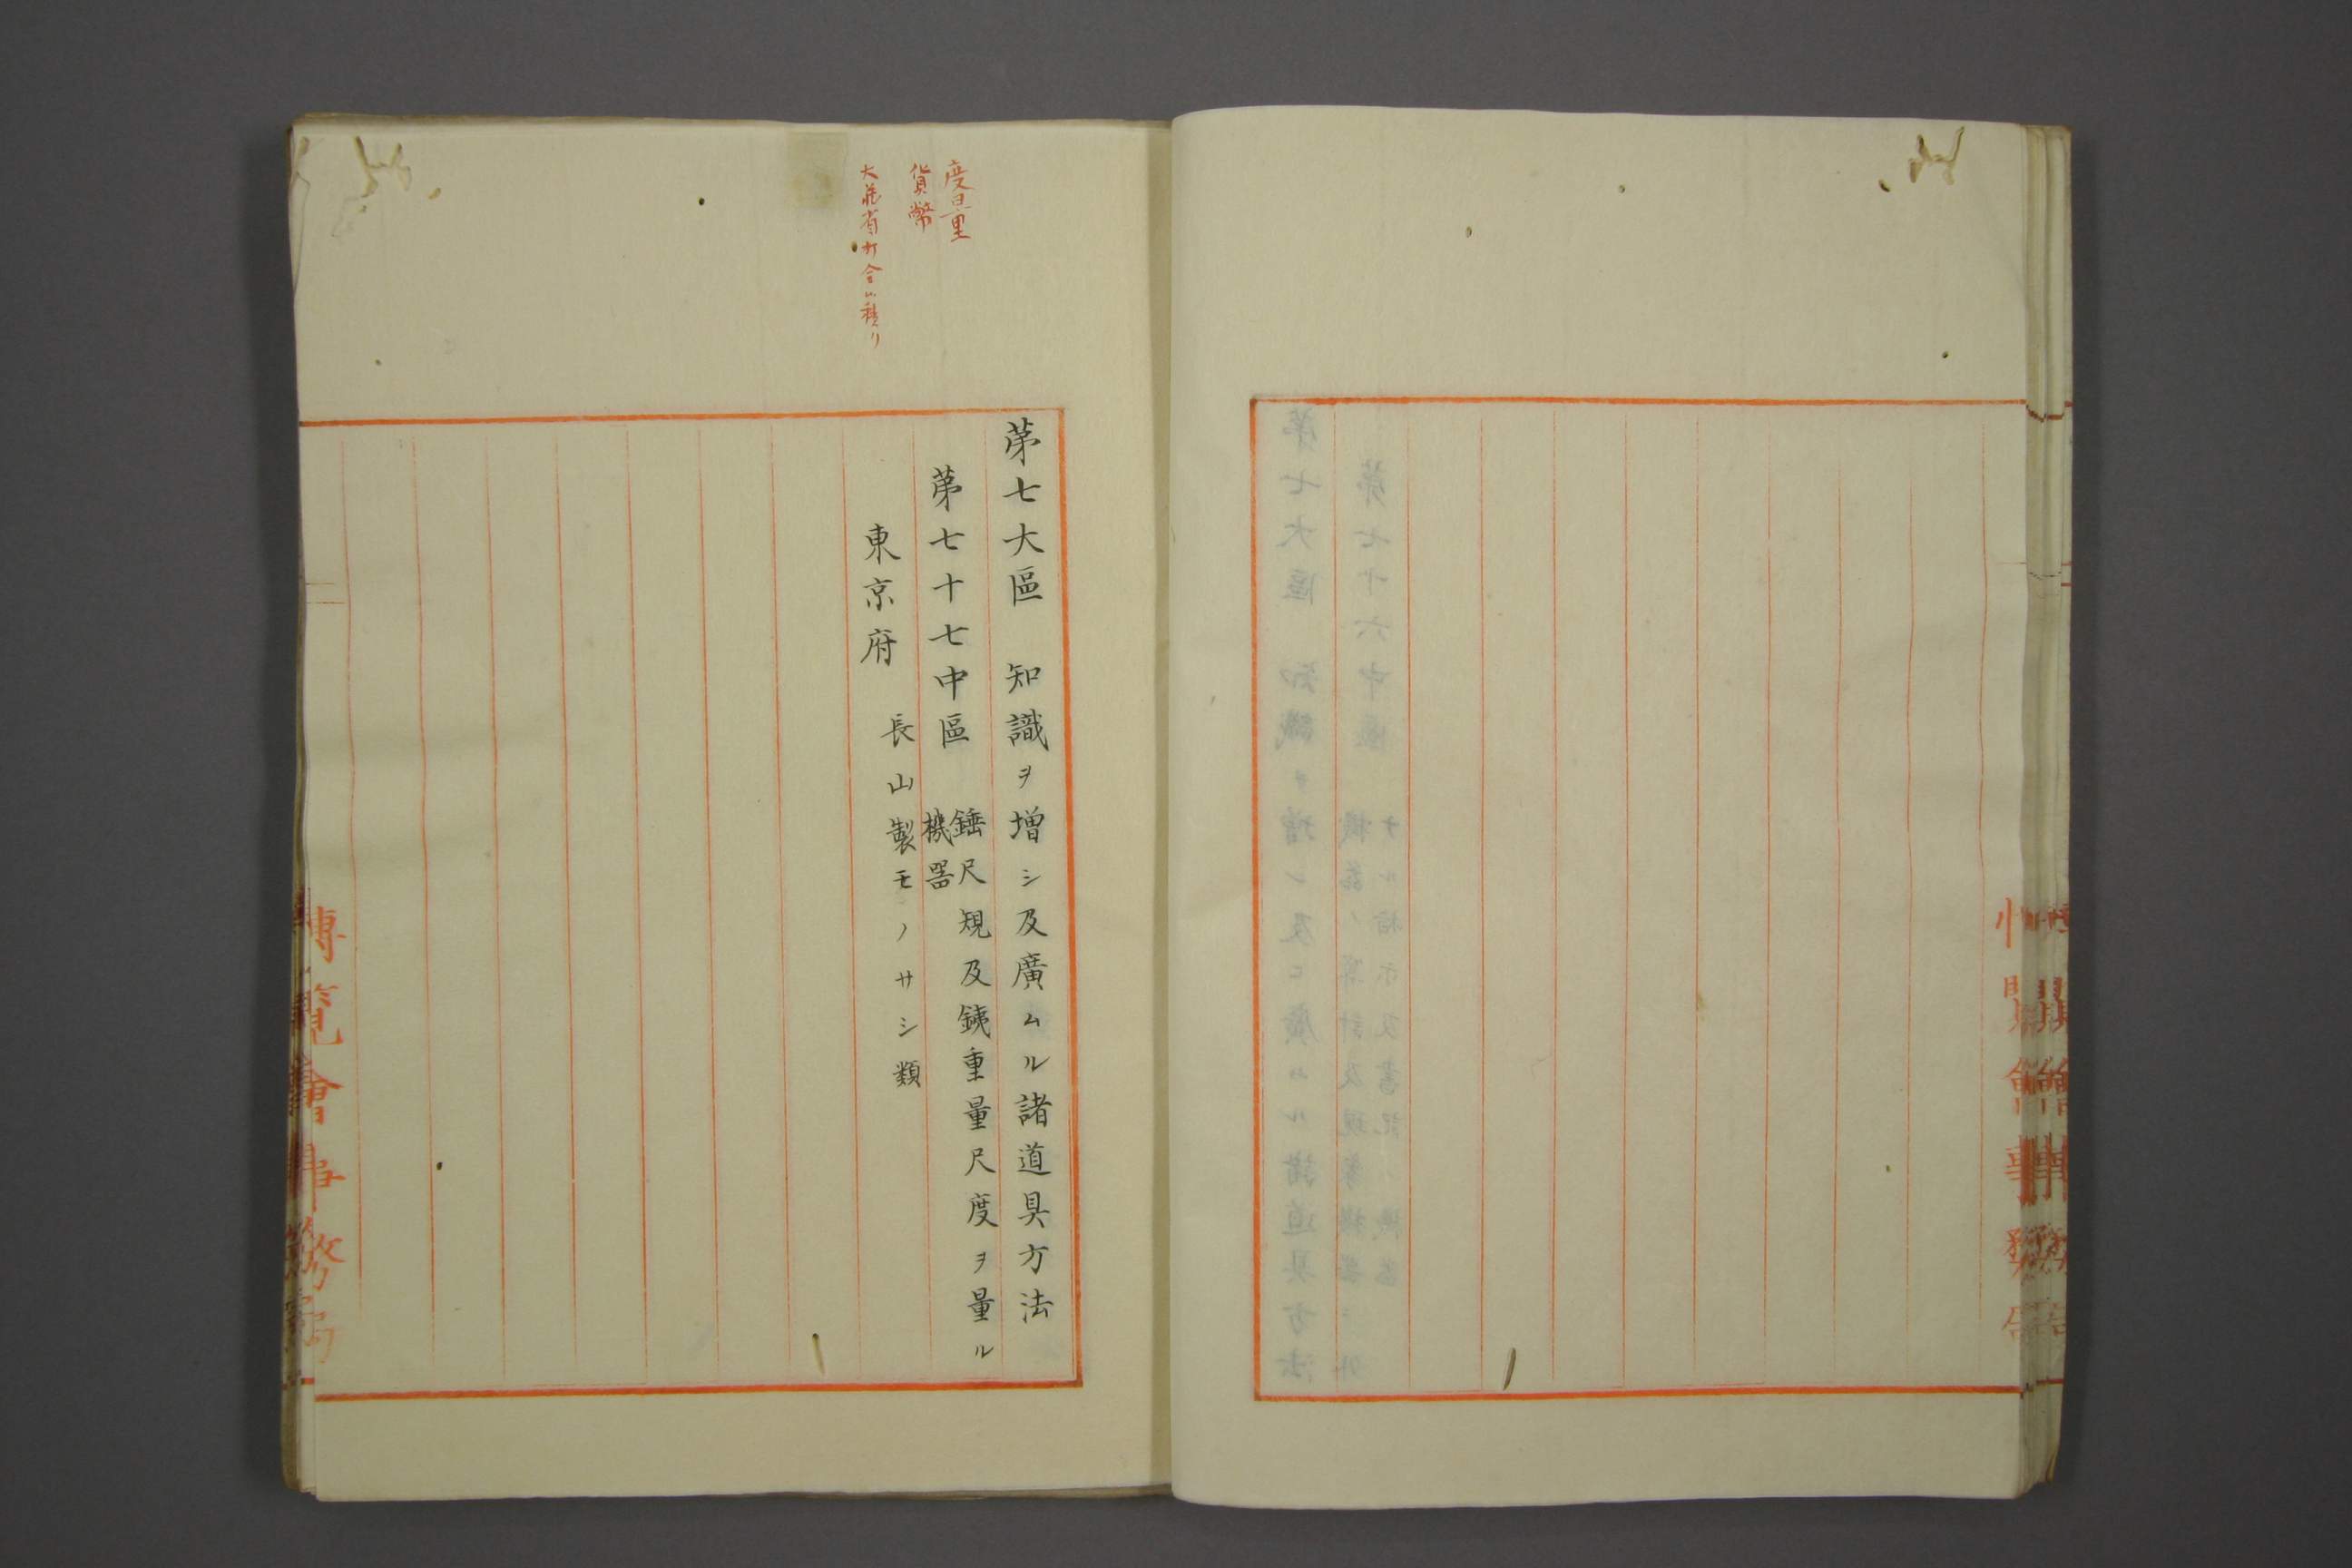 度量
貨幣
大藏省
第七大區　知識ヲ增シ及廣ムル諸道具方法
第七十七中區　錘尺規及銕重量尺度ヲ量ル
機器
東京府　長山製モノサシ類
博覽會事務局